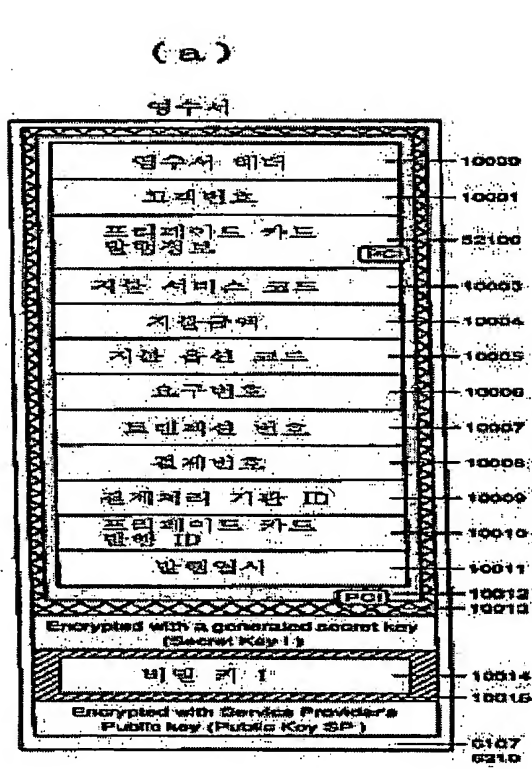 (a)
영수서
영수서 헤더
10000
고객번호
10001
프리페이드 카드
발행정보
52100
지불 서비스 코드
10003
지불금액
10004
지불 옵션 코드
10005
요구번호
10006
트랜잭션 번호
10007
결제번호
10008
결제처리 기관 ID
10009
프리페이드 카드
발행 ID
10010
발행일시
10011
(PCI)
10012
10013
Encrypted with a generated secret key
(Secret Key I)
비밀 키 I
10014
10015
Encrypted with Service Provider's
Public key (Public Key SP)
6107
6210